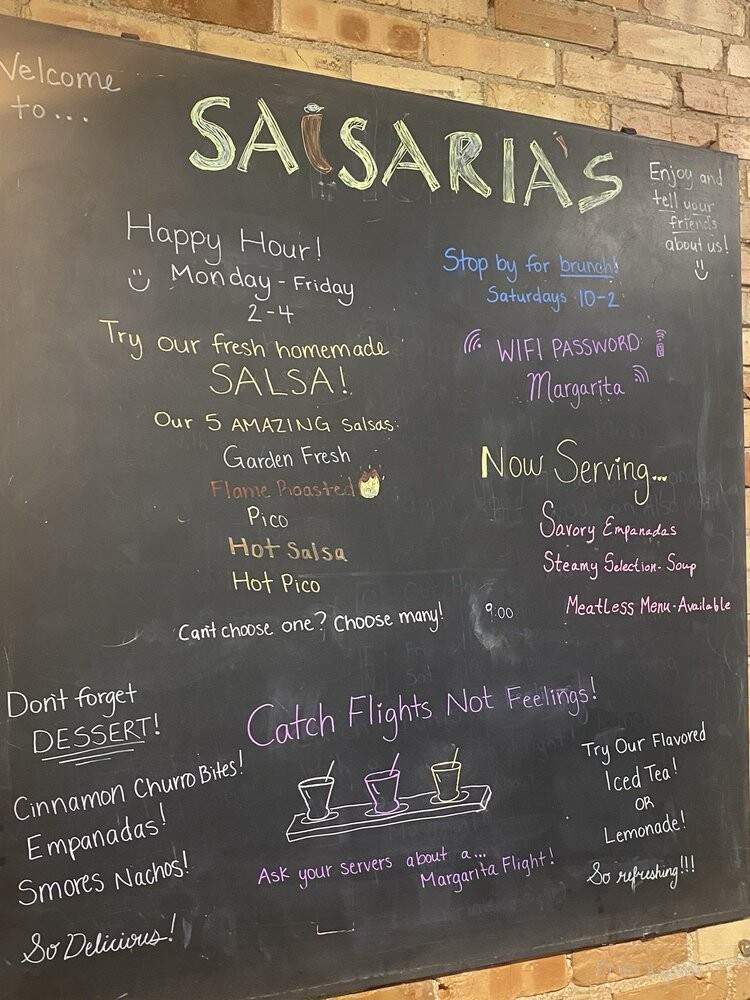 Welcome
to...
SALSARIA'S
Enjoy and
tell your
friends
about us!
Happy Hour!
Monday - Friday
2-4
Stop by for brunch!
Saturdays 10-2
Try our fresh homemade
SALSA!
WIFI PASSWORD:
Margarita
Our 5 AMAZING Salsas:
Garden Fresh
Flame Roasted
Pico
Hot Salsa
Hot Pico
Can't choose one? Choose many! 9.00
Now Serving...
Savory Empanadas
Steamy Selection - Soup
Meatless Menu - Available
Don't forget
DESSERT!
Cinnamon Churro Bites!
Empanadas!
Smores Nachos!
So Delicious!
Catch Flights Not Feelings!
Ask your servers about a...
Margarita Flight!
Try Our Flavored
Iced Tea!
OR
Lemonade!
So refreshing!!!